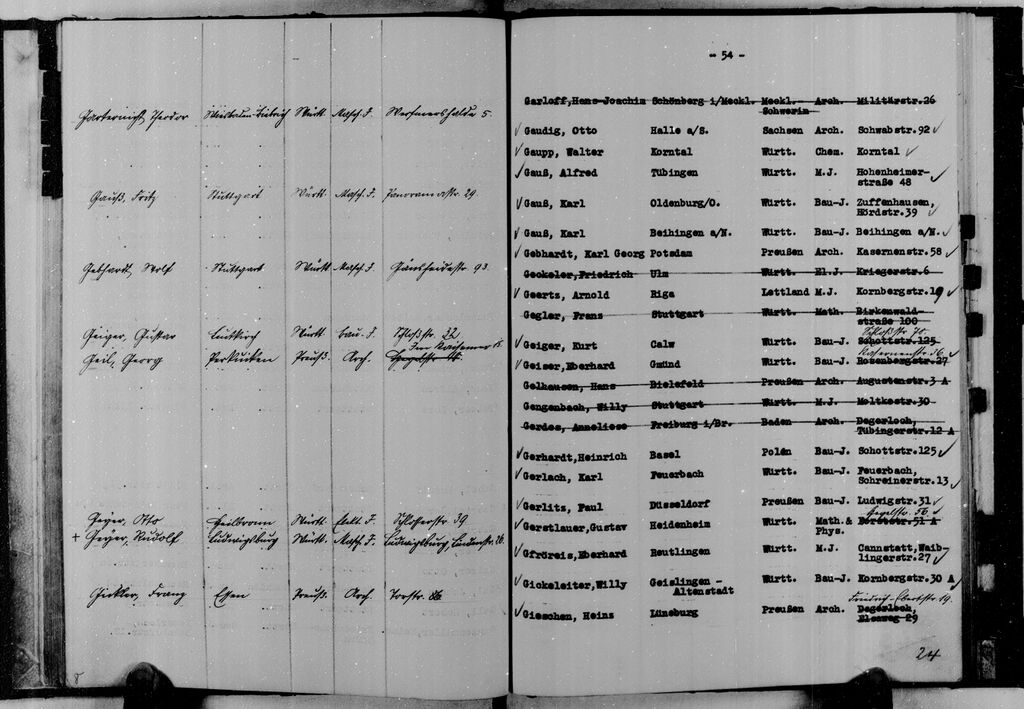 Gauß, Fritz Stuttgart Württ. Masch. J. Panoramastr. 29.
Gebhardt, Wolf Stuttgart Württ. Masch. J. Gänsheidestr. 93.
Geiger, Gustav Leutkirch Württ. Bau. J. Schloßstr. 32
Geil, Georg Preuß. Arch.
Geyer, Otto Heilbronn Württ. Elekt. J. Schloßstr. 39
+ Geyer, Rudolf Ludwigsburg Württ. Masch. J. Ludwigsburg, Lindenstr. 26.
Franz Essen Preuß. Arch.
- 54 -
Garloff,Hans-Joachim Schönberg i/Meckl. Meckl.- Arch. Militärstr.26
Schwerin
✓ Gaudig, Otto Halle a/S. Sachsen Arch. Schwabstr.92 ✓
✓ Gaupp, Walter Korntal Württ. Chem. Korntal ✓
✓ Gauß, Alfred Tübingen Württ. M.J. Hohenheimer-
straße 48 ✓
✓ Gauß, Karl Oldenburg/O. Württ. Bau-J. Zuffenhausen,
Hördstr.39 ✓
✓ Gauß, Karl Beihingen a/N. Württ. Bau-J. Beihingen a/N. ✓
✓ Gebhardt, Karl Georg Potsdam Preußen Arch. Kasernenstr.58 ✓
Geckeler,Friedrich Ulm Württ. El.J. Kriegerstr.6
✓ Geertz, Arnold Riga Lettland M.J. Kornbergstr.19 ✓
Gegler, Franz Stuttgart Württ. Math. Birkenwald-
straße 100
✓ Geiger, Kurt Calw Württ. Bau-J. Schottstr.125
Kasernenstr. 36 ✓
✓ Geiser,Eberhard Gmünd Württ. Bau-J. Rosenbergstr.27
Gelhausen, Hans Bielefeld Preußen Arch. Augustenstr.3 A
Gengenbach, Willy Stuttgart Württ. M.J. Moltkestr.30
Gerdes, Anneliese Freiburg i/Br. Baden Arch. Degerloch,
Tübingerstr.12 A
✓ Gerhardt,Heinrich Basel Polen Bau-J. Schottstr.125 ✓
✓ Gerlach, Karl Feuerbach Württ. Bau-J. Feuerbach,
Schreinerstr.13 ✓
✓ Gerlits, Paul Düsseldorf Preußen Bau-J. Ludwigstr.31 ✓
Hegelstr. 56. ✓
✓ Gerstlauer,Gustav Heidenheim Württ. Math.& Forststr.51 A
Phys.
✓ Gfröreis,Eberhard Reutlingen Württ. M.J. Cannstatt,Waib-
lingerstr.27 ✓
✓ Gickeleiter,Willy Geislingen - Württ. Bau-J. Kornbergstr.30 A ✓
Altenstadt
Friedrich-Ebertstr. 19.
✓ Gieschen, Heinz Lüneburg Preußen Arch. Degerloch,
Elsaweg 29
24